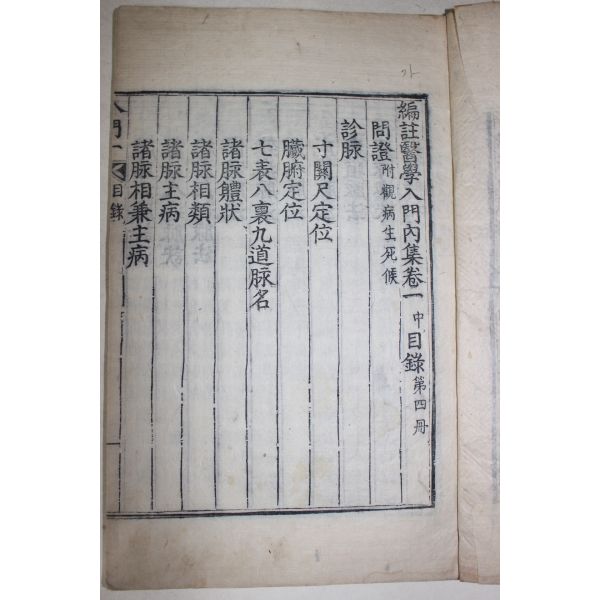 編註醫學入門內集卷一 中 目錄 第四冊
問證 附觀病生死候
診脉
寸關尺定位
臟腑定位
七表八裏九道脉名
諸脉體狀
諸脉相類
諸脉主病
諸脉相兼主病
入門一 目錄